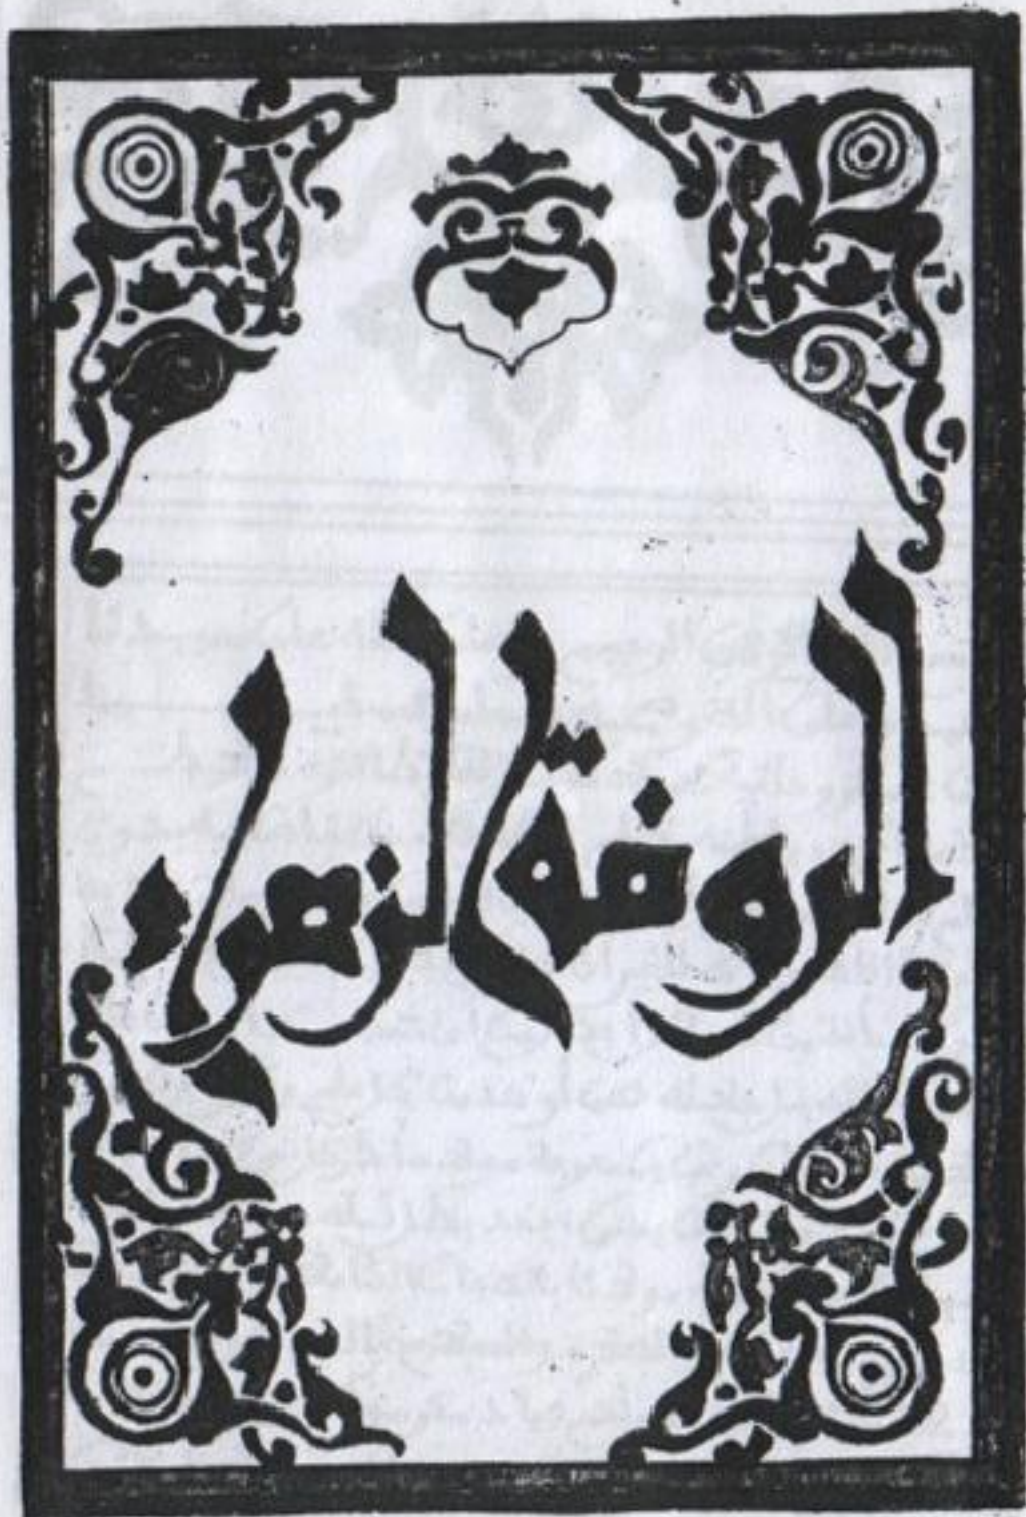 الروضة الزهراء